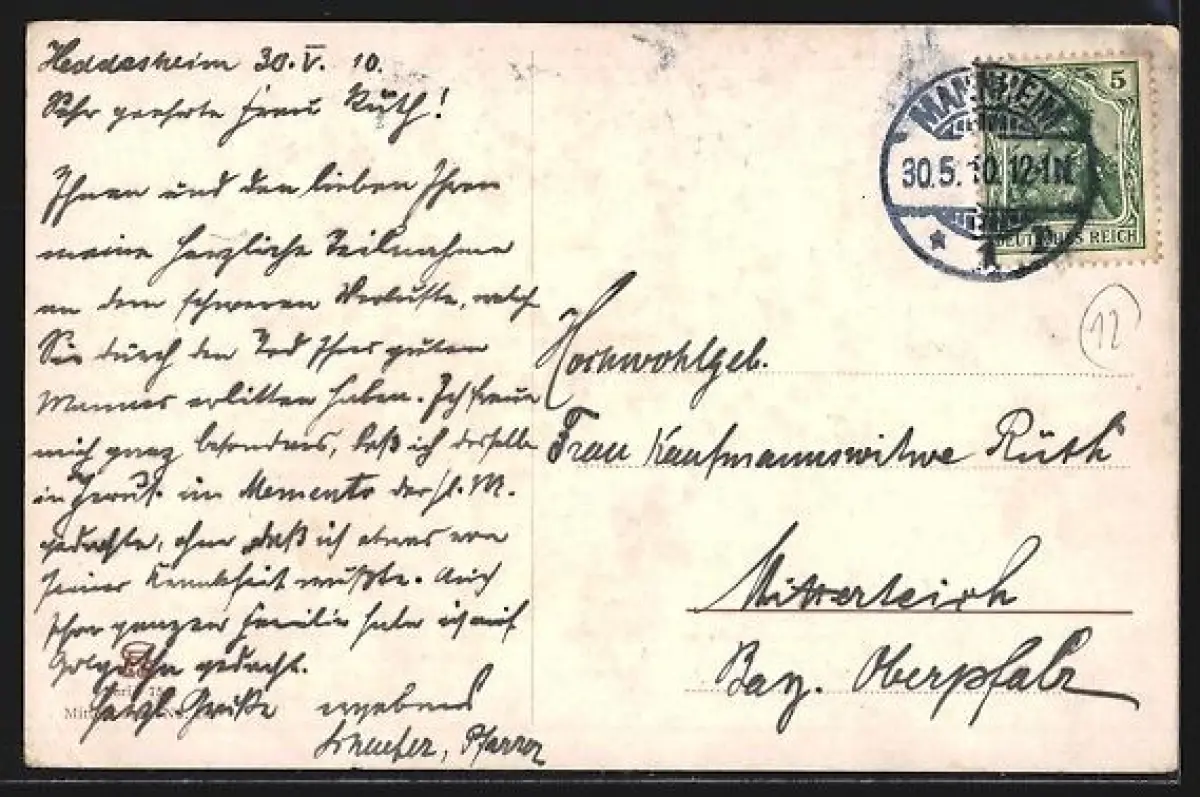 Heddesheim 30. V. 10.
Sehr geehrte Frau Rüth!
Ihnen und den lieben Ihren
meine herzliche Teilnahme
an dem schweren Verluste, welch
Sie durch den Tod Ihres guten
Mannes erlitten haben. Ich freue
mich ganz besonders, daß ich desselben
in Jerus. im Memento der hl. M.
gedachte, ohne daß ich etwas von
seiner Krankheit wußte. Auch
Ihrer ganzen Familie habe ich auf
Golgotha gedacht.
Herzl. Grüße ergebenst
Schaefer, Pfarrer
MANNHEIM
30.5.10.12-1N
* 1
5
DEUTSCHES REICH
12
Hochwohlgeb.
Frau Kaufmannswitwe Rüth
Mitterteich
Bay. Oberpfalz